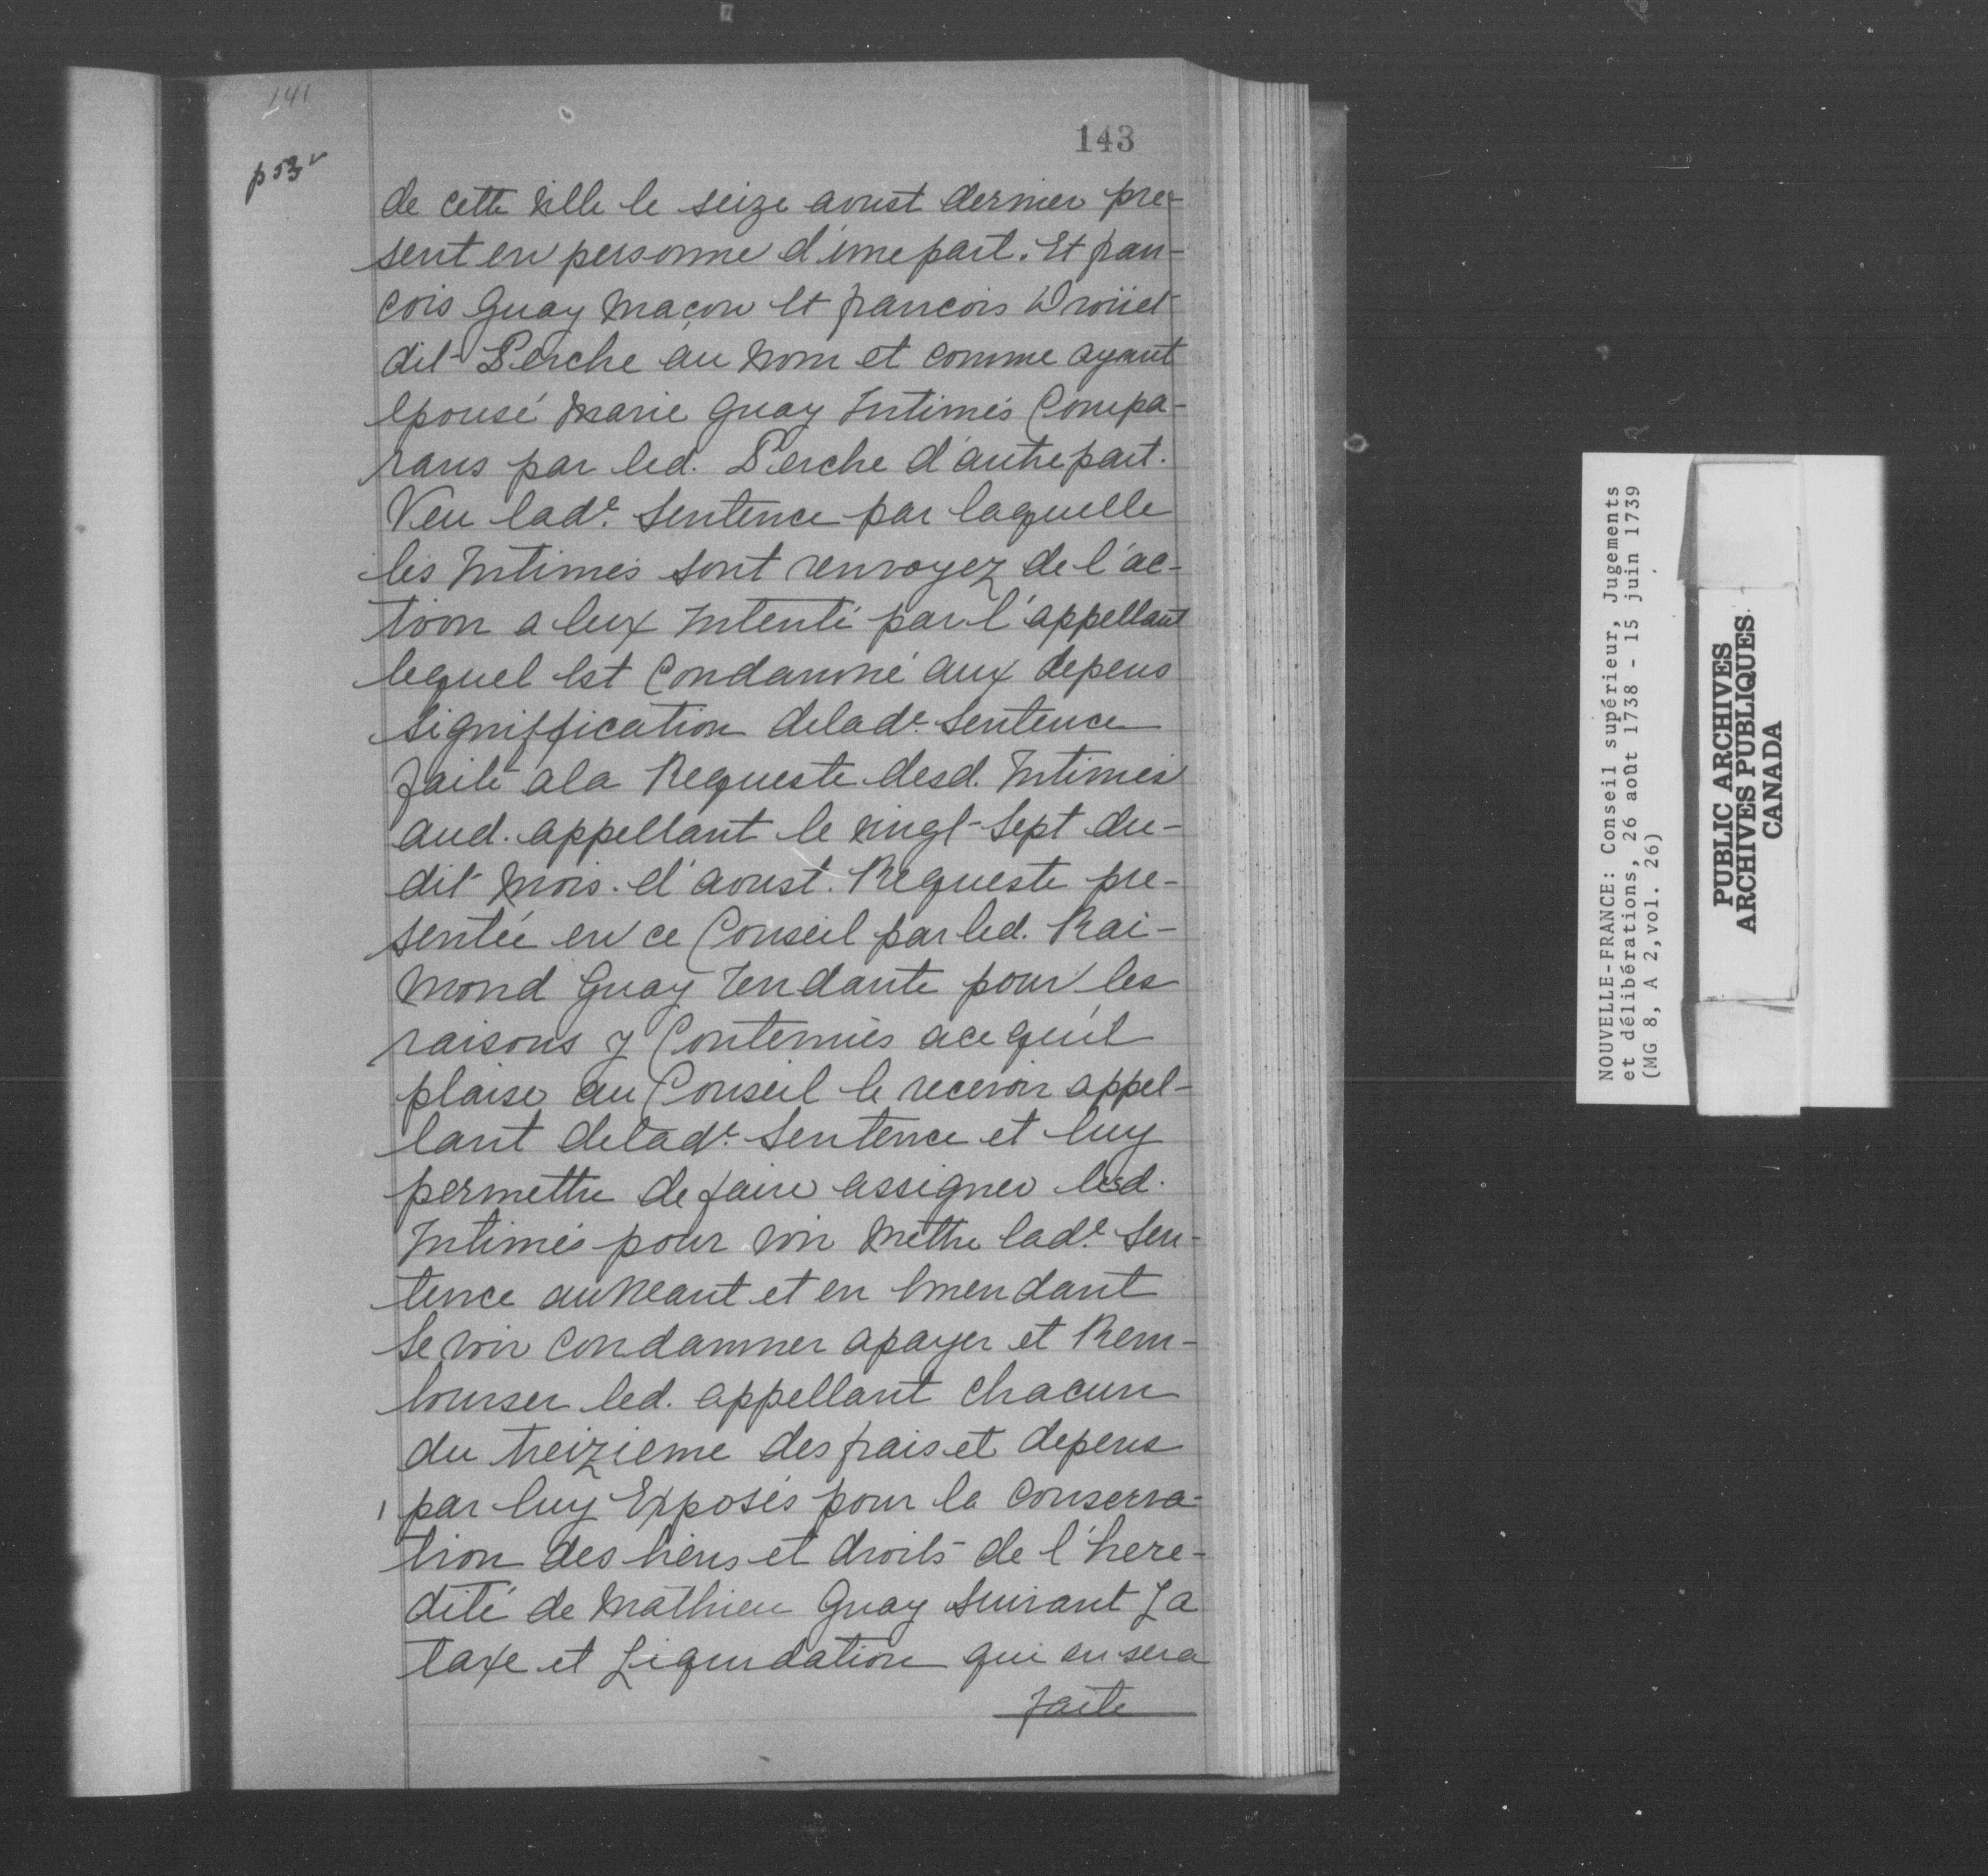 141
143
p 53 v
de cette ville le seize aoust dernier pre-
sent en personne d'une part. Et fran-
cois Guay Maçon et francois Droüet
dit Perche au nom et comme ayant
epousé Marie Guay Intimés Compa-
rans par led. Perche d'autre part.
Veu lade. Sentence par laquelle
les Intimés sont renvoyez de l'ac-
tion a eux Intenté par l'appellant
lequel est Condamné aux depens
Signiffication delade. Sentence
faite a la Requeste desd. Intimés
aud. appellant le vingt-Sept du-
dit Mois d'aoust. Requeste pre-
sentée en ce Conseil par led. Rai-
mond Guay Tendante pour les
raisons y Contenües ace qu'il
plaise au Conseil le recevoir appel-
lant delade. Sentence et luy
permettre de faire assigner lesd.
Intimés pour voir Mettre lade. Sen-
tence au Neant et en Emendant
Se voir Condamner apayer et Rem-
bourser led. appellant Chacun
du treizieme des frais et depens
par luy Exposés pour la Conserva-
tion des biens et droits de l'here-
dité de Mathieu Guay Suivant La
taxe et Liquidation qui en sera
faite
NOUVELLE-FRANCE: Conseil supérieur, Jugements
et délibérations, 26 août 1738 - 15 juin 1739
(MG 8, A 2,vol. 26)
PUBLIC ARCHIVES
ARCHIVES PUBLIQUES
CANADA